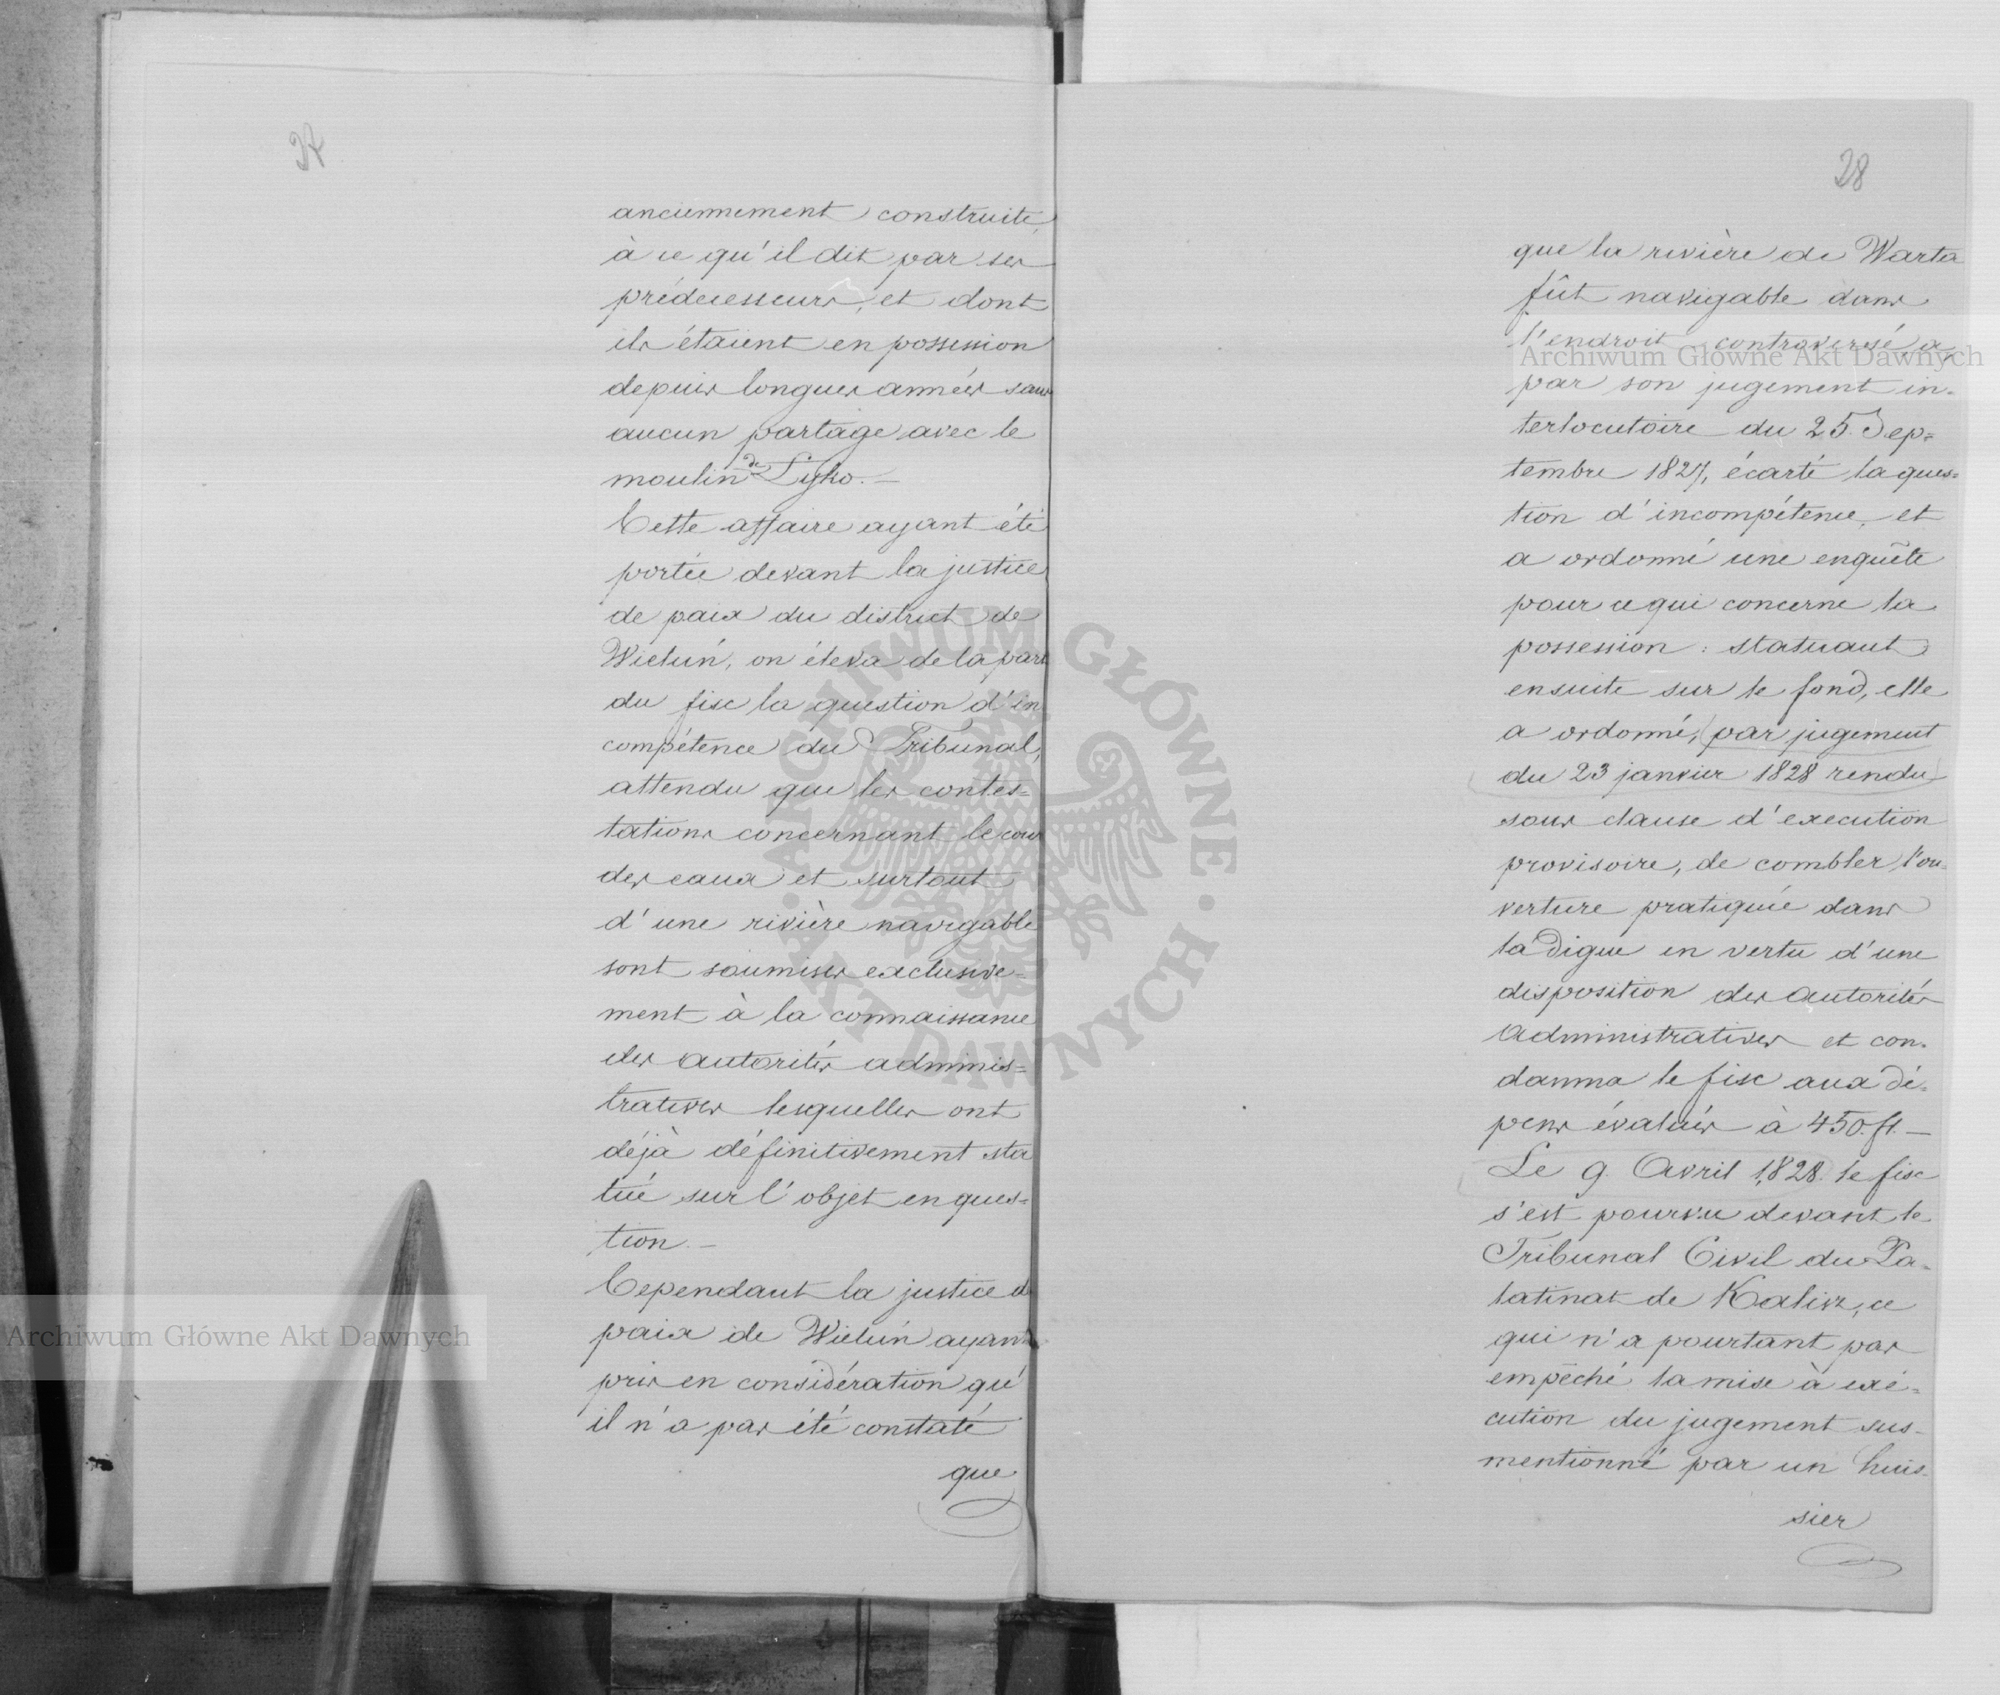 27
anciennement construite,
à ce qu'il dit par ses
prédécesseurs, et dont
ils étaient en possession
depuis longues années sans
aucun partage avec le
moulin de Łyko.—
Cette affaire ayant été
portée devant la justice
de paix du district de
Wieluń, on éleva de la part
du fisc la question d'in
compétence du Tribunal,
attendu que les contes=
tations concernant le cours
des eaux et surtout
d'une rivière navigable
sont soumises exclusive=
ment à la connaissance
des autorités adminis=
tratives lesquelles ont
déjà définitivement sta
tué sur l'objet en ques=
tion.—
Cependant la justice de
paix de Wieluń ayant
pris en considération qu'
il n'a pas été constaté
que
28
que la rivière de Warta
fût navigable dans
l'endroit controversé a,
par son jugement in=
terlocutoire du 25. Sep=
tembre 1827, écarté la ques=
tion d'incompétence, et
a ordonné une enquête
pour ce qui concerne la
possession : statuant
ensuite sur le fond, elle
a ordonné, par jugement
du 23 janvier 1828 rendu
sous clause d'execution
provisoire, de combler l'ou=
verture pratiquée dans
la digue en vertu d'une
disposition des autorités
administratives et con=
damna le fisc aux dé=
pens évalués à 450 fl.—
Le 9. Avril 1828. le fisc
s'est pourvu devant le
Tribunal Civil du Pa=
latinat de Kalisz, ce
qui n'a pourtant pas
empêché la mise à exé=
cution du jugement sus=
mentionné par un huis=
sier
Archiwum Główne Akt Dawnych
Archiwum Główne Akt Dawnych
· ARCHIWUM GŁÓWNE · AKT DAWNYCH